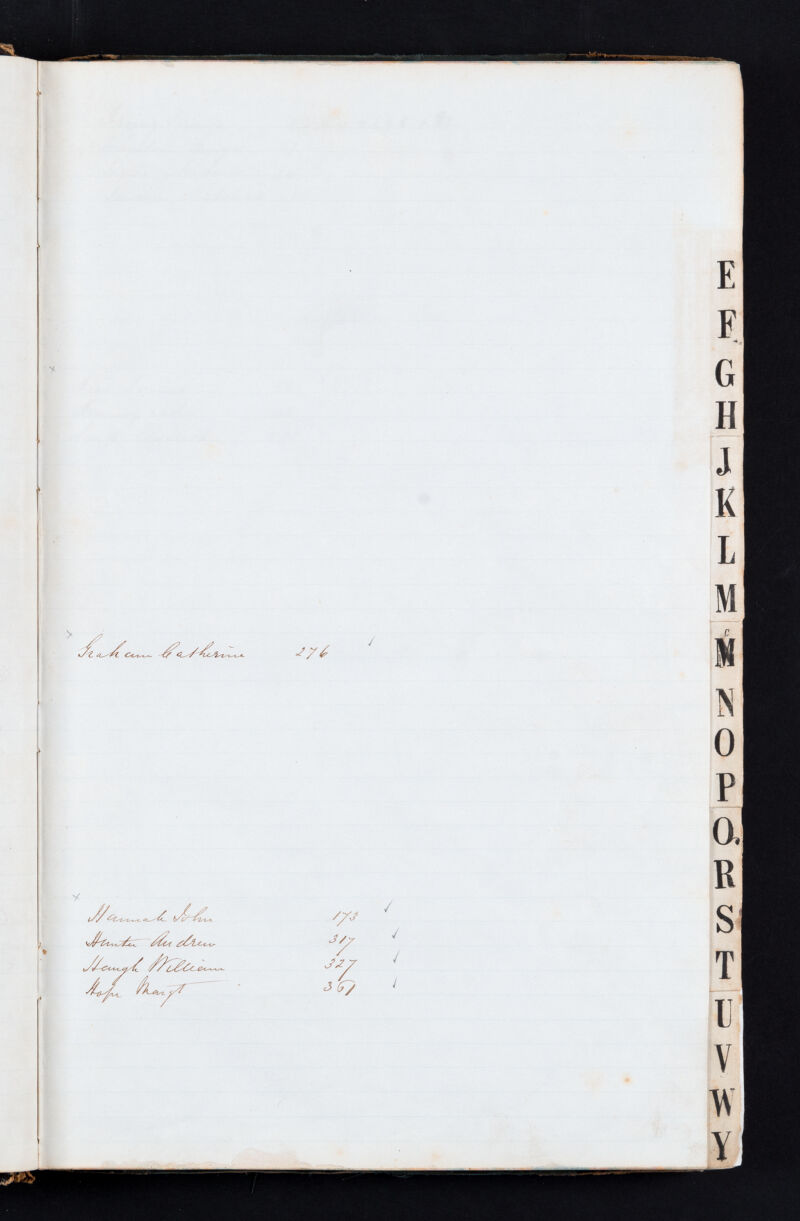 Graham Catherine 276 ✓
Hannah John 173 ✓
Hunter Andrew 317 ✓
Haugh William 327 ✓
Hope Margt 361 ✓
E
F
G
H
J
K
L
M
Mc
N
O
P
Q
R
S
T
U
V
W
Y